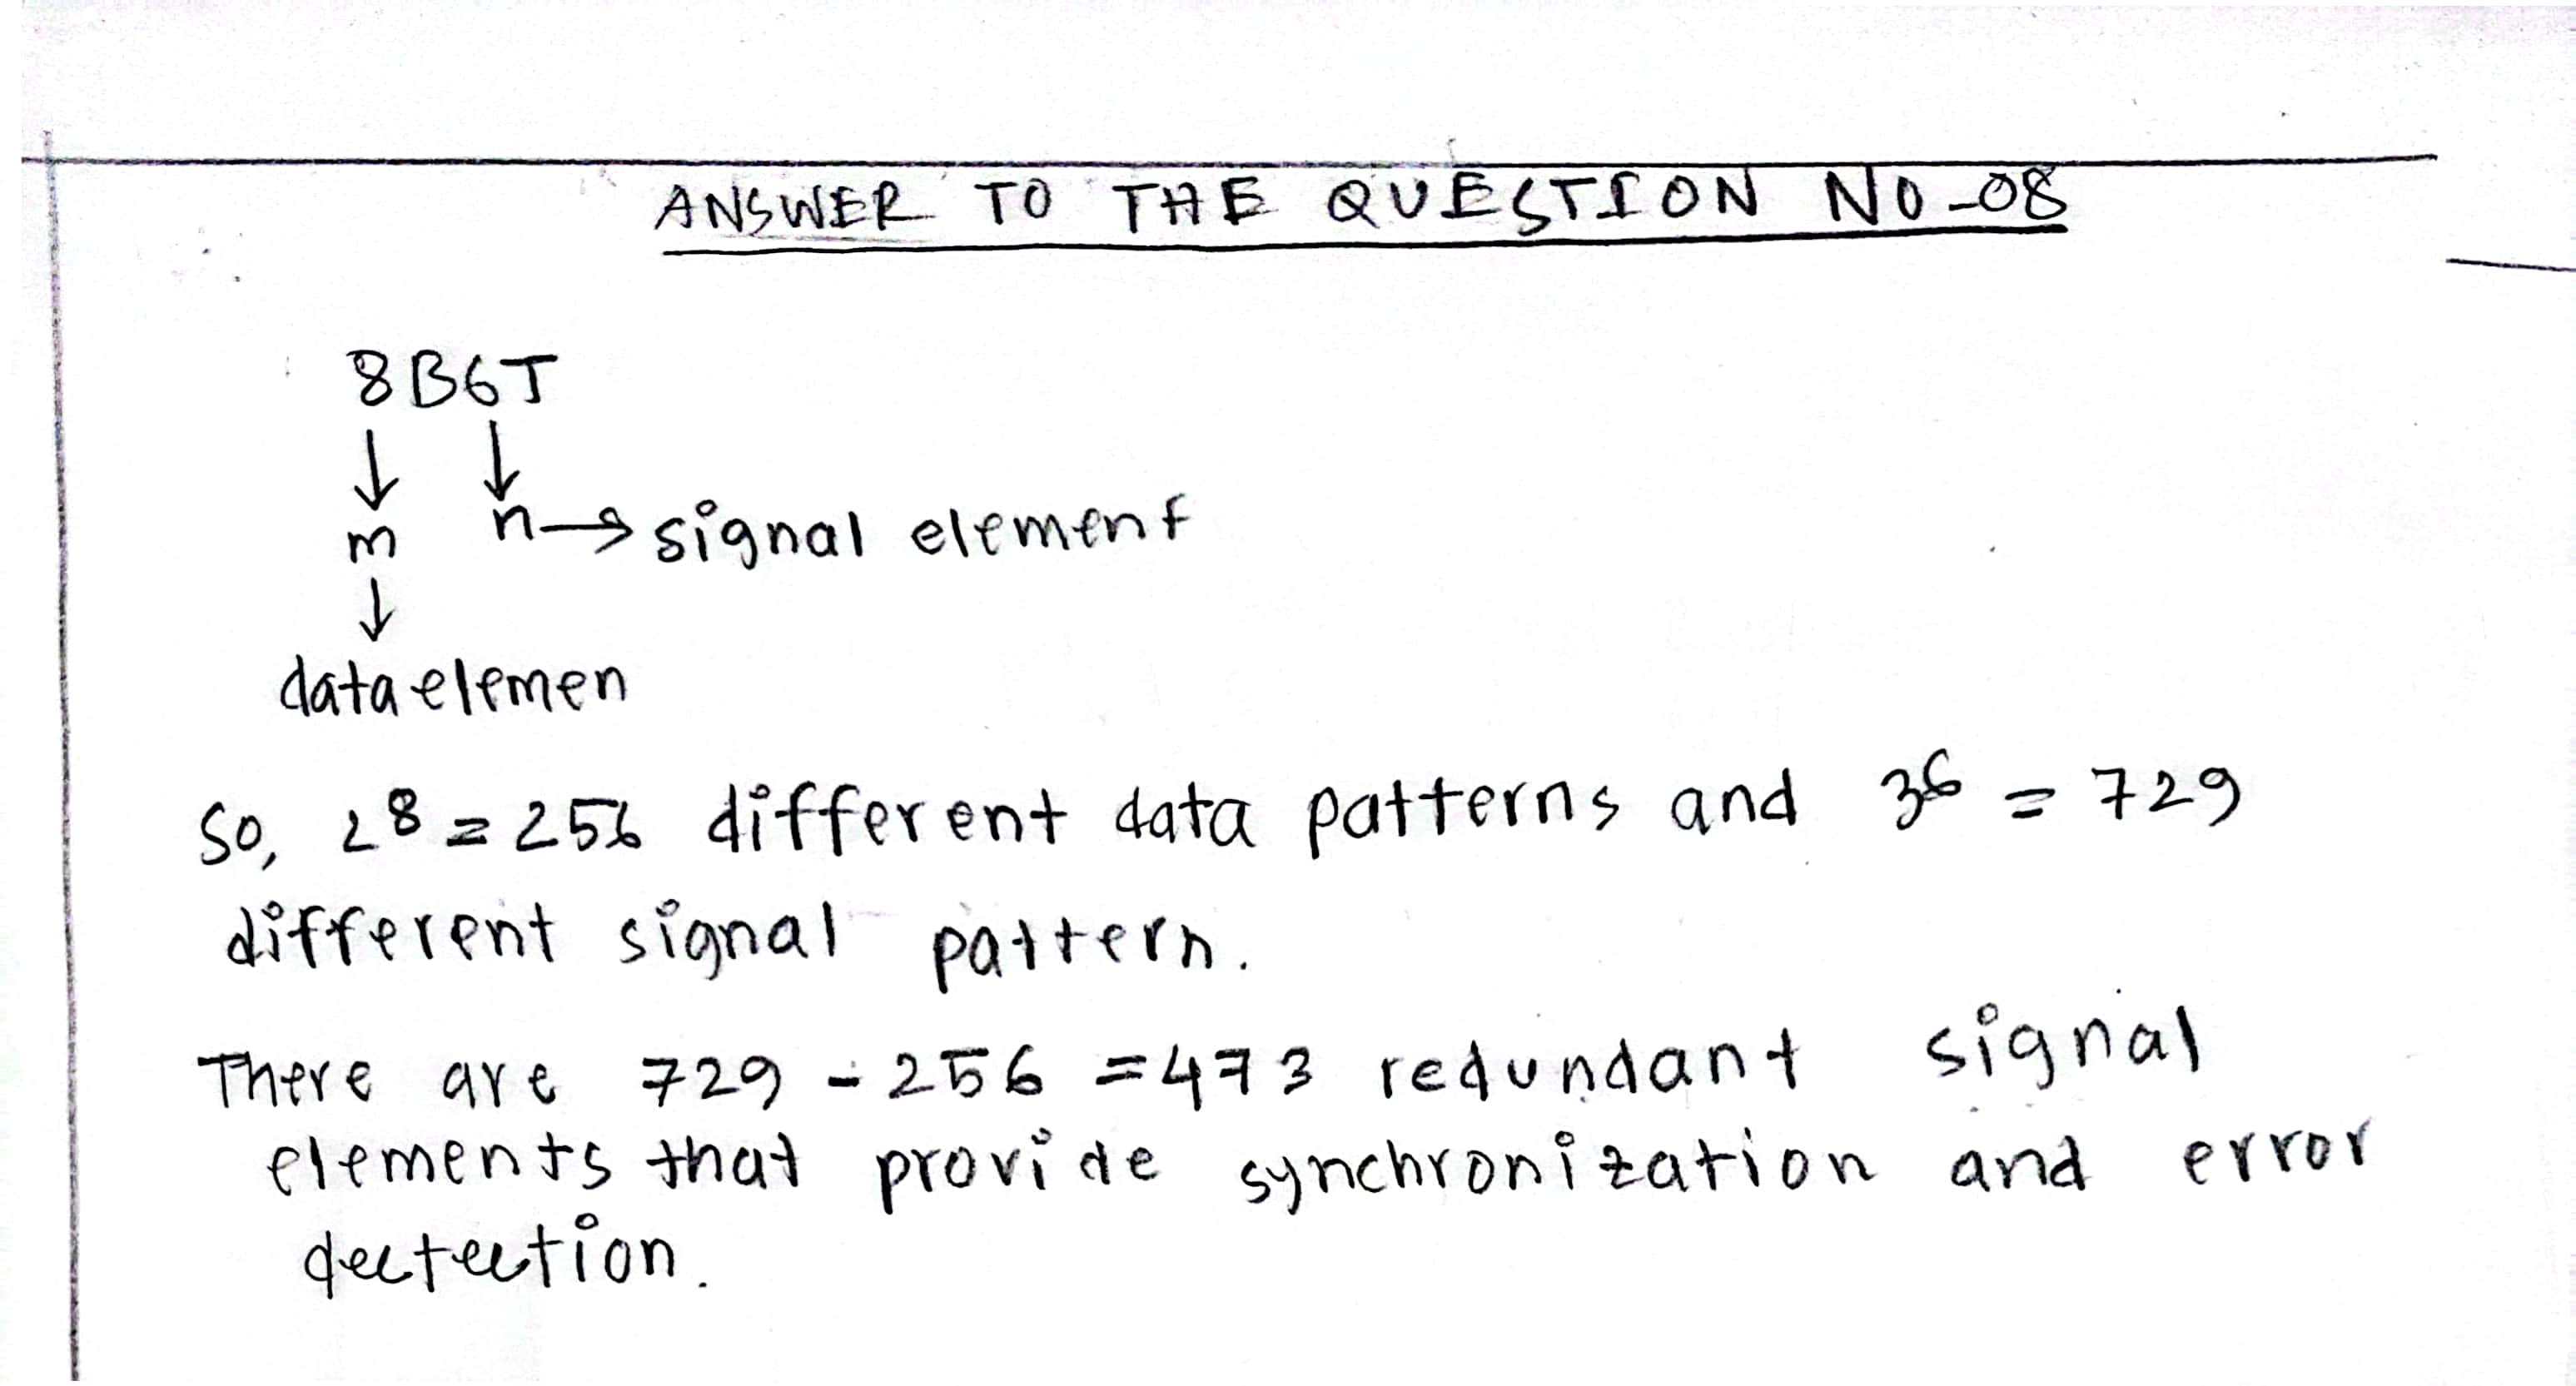 ANSWER TO THE QUESTION NO-08
8B6T
↓ ↓
m n→signal element
↓
data elemen
So, 2⁸ = 256 different data patterns and 3⁶ = 729
different signal pattern.
There are 729 - 256 = 473 redundant signal
elements that provide synchronization and error
dectection.